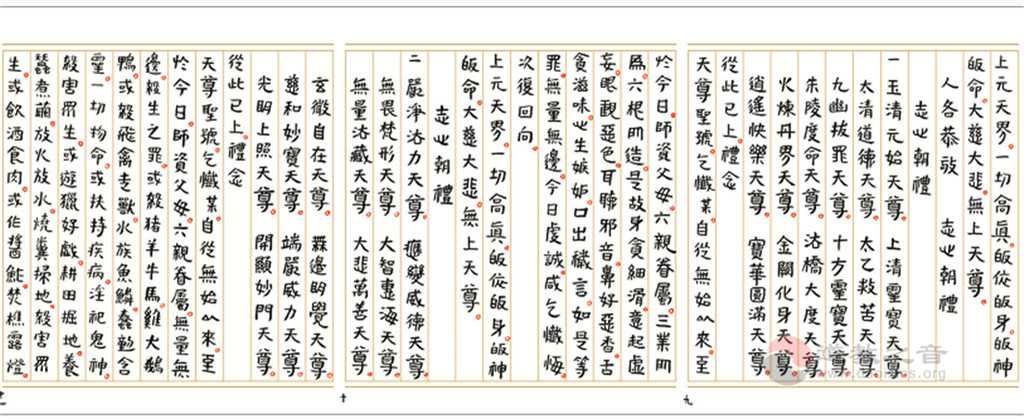 上元天界。一切高真。皈從皈身。皈神
皈命。大慈大悲。無上天尊。
人各恭敬　志心朝禮
志心朝禮
一玉清元始天尊。上清靈寶天尊
太清道德天尊。太乙救苦天尊
九幽拔罪天尊。十方靈寶天尊
朱陵度命天尊。法橋大度天尊
火煉丹界天尊。金闕化身天尊
逍遙快樂天尊。寶華圓滿天尊
從此已上。禮念
天尊聖號。乞懺某自從無始以來。至
九
於今日。師資父母。六親眷屬。三業四
為。六根四造。是故身貪細滑。意起虛
妄。眼觀惡色。耳聽邪音。鼻好惡香。舌
貪滋味。心生嫉妬。口出穢言。如是等
罪。無量無邊。今日虔誠。咸乞懺悔。
次復回向。
上元天界。一切高真。皈從皈身。皈神
皈命。大慈大悲。無上天尊
志心朝禮
二嚴淨法力天尊。應變威德天尊
無畏梵形天尊。大智慧海天尊
無量法藏天尊。大悲萬善天尊
十
玄微自在天尊。無邊明覺天尊
慈和妙寶天尊。端嚴威力天尊
光明上照天尊。開顯妙門天尊
從此已上。禮念
天尊聖號。乞懺某。自從無始以來。至
於今日。師資父母。六親眷屬。無量無
邊。殺生之罪。或殺豬羊牛馬。雞犬鵝
鴨。或殺飛禽走獸。水族魚鱗。蠢動含
靈。一切物命。或扶持疾病。淫祀鬼神
殺害眾生。或遊獵好戲。耕田掘地。養
蠶煮繭。放火放水。燒糞掃地。殺害眾
生。或飲酒食肉。或作醬酢。焚樵露燈